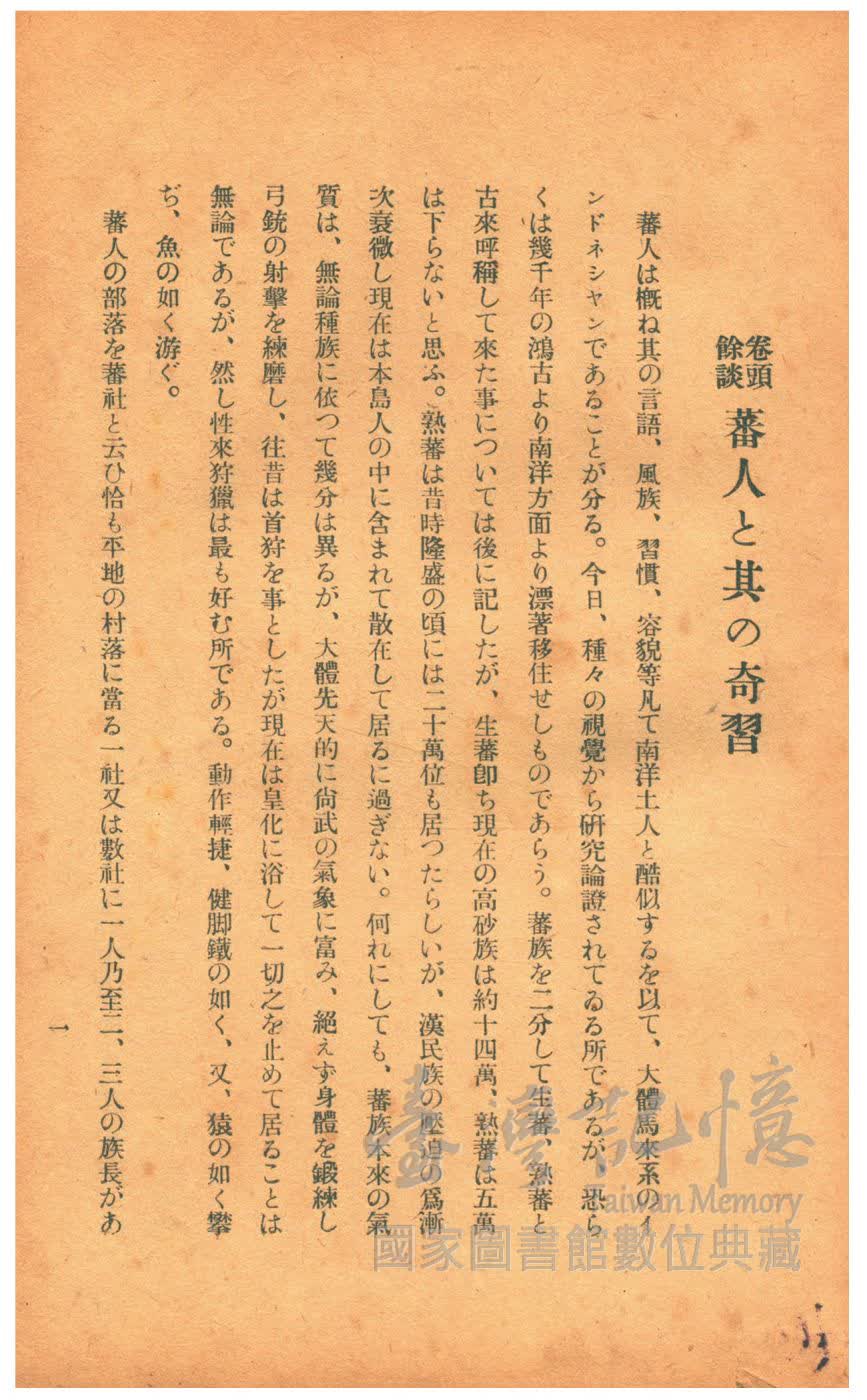 卷頭餘談 蕃人と其の奇習
蕃人は槪ね其の言語、風族、習慣、容貌等凡て南洋土人と酷似するを以て、大體馬來系のイ
ンドネシヤンであることが分る。今日、種々の視覺から硏究論證されてゐる所であるが、恐ら
くは幾千年の鴻古より南洋方面より漂著移住せしものであらう。蕃族を二分して生蕃、熟蕃と
古來呼稱して來た事については後に記したが、生蕃卽ち現在の高砂族は約十四萬、熟蕃は五萬
は下らないと思ふ。熟蕃は昔時隆盛の頃には二十萬位も居つたらしいが、漢民族の壓迫の爲漸
次衰微し現在は本島人の中に含まれて散在して居るに過ぎない。何れにしても、蕃族本來の氣
質は、無論種族に依つて幾分は異るが、大體先天的に尙武の氣象に富み、絕えず身體を鍛練し
弓銃の射擊を練磨し、往昔は首狩を事としたが現在は皇化に浴して一切之を止めて居ることは
無論であるが、然し性來狩獵は最も好む所である。動作輕捷、健脚鐵の如く、又、猿の如く攀
ぢ、魚の如く游ぐ。
蕃人の部落を蕃社と云ひ恰も平地の村落に當る一社又は數社に一人乃至二、三人の族長があ
一
臺灣記憶
Taiwan Memory
國家圖書館數位典藏